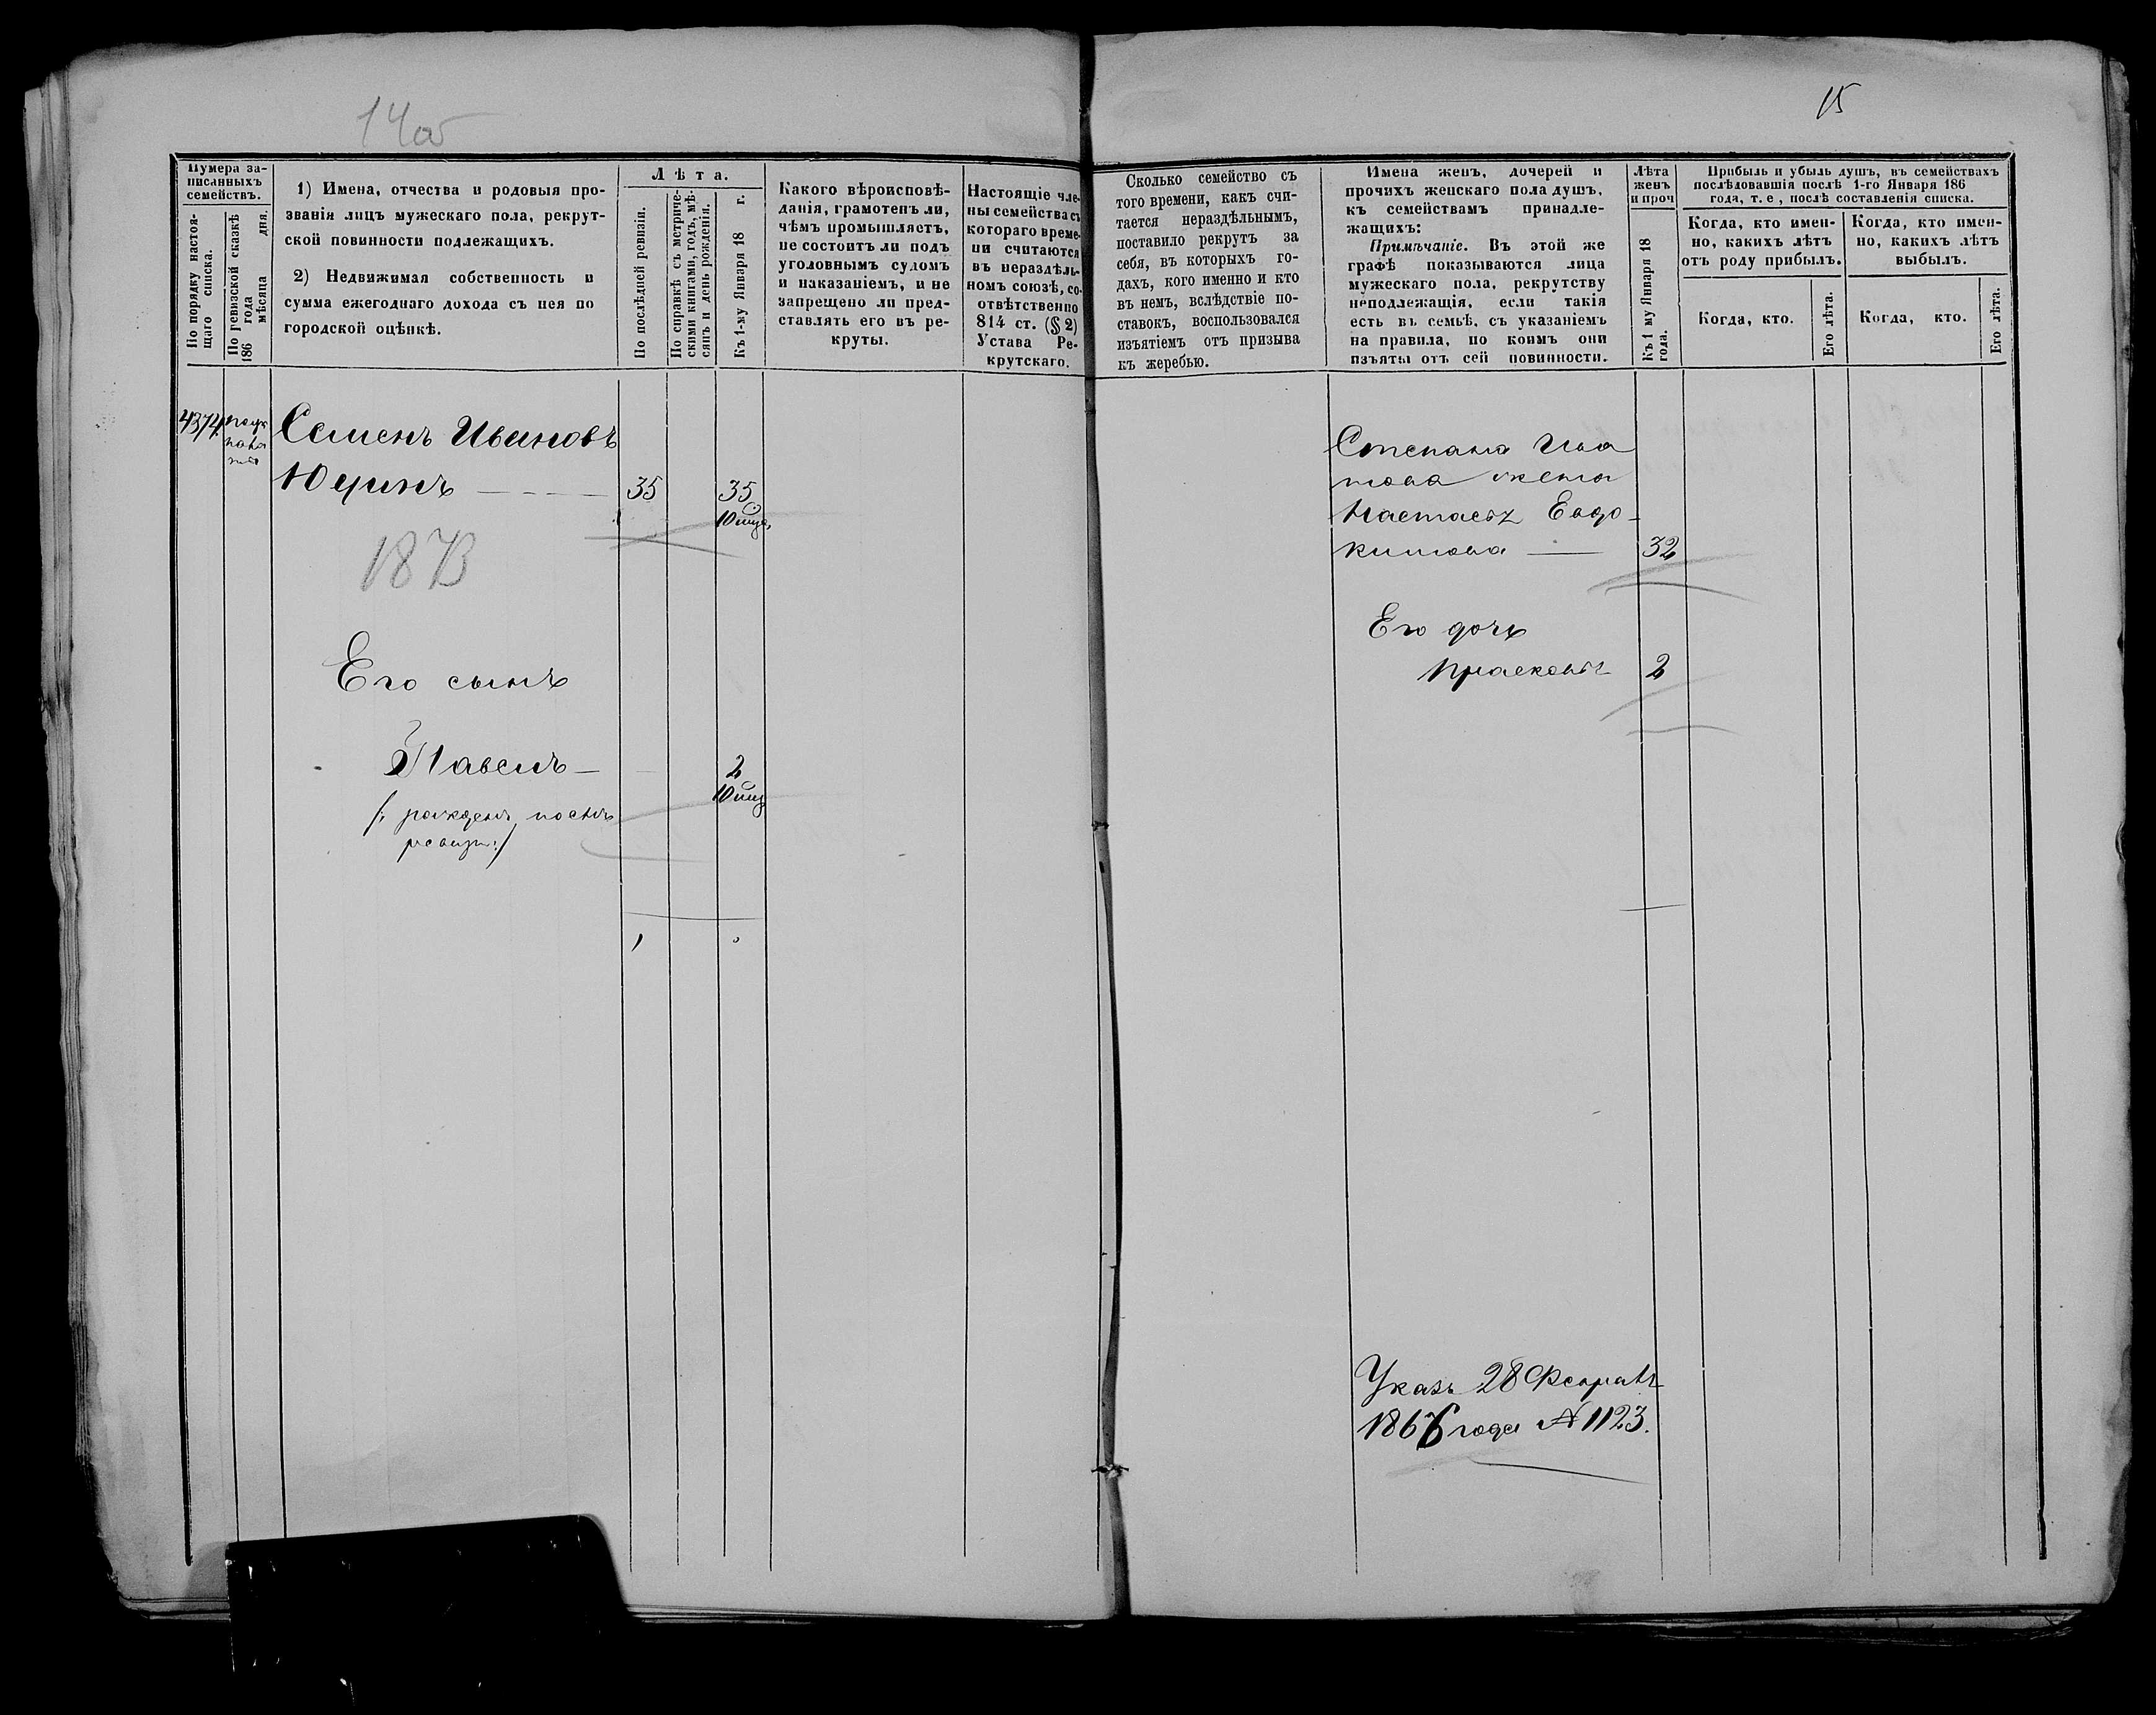 14об
15
Нумера за-
писанныхъ
семействъ.
По порядку настоя-
щаго списка.
По ревизской сказкѣ
186 года
мѣсяца дня.
1) Имена, отчества и родовыя про-
званія лицъ мужескаго пола, рекрут-
ской повинности подлежащихъ.
2) Недвижимая собственность и
сумма ежегоднаго дохода съ нея по
городской оцѣнкѣ.
Лѣта.
По послѣдней ревизіи.
По справкѣ съ метриче-
скими книгами, годъ, мѣ-
сяцъ и день рожденія.
Къ 1-му Января 18 г.
Какого вѣроисповѣ-
данія, грамотенъ ли,
чѣмъ промышляетъ,
не состоитъ ли подъ
уголовнымъ судомъ
и наказаніемъ, и не
запрещено ли пред-
ставлять его въ ре-
круты.
Настоящіе чле-
ны семейства съ
котораго време-
ни считаются
въ нераздѣль-
номъ союзѣ, со-
отвѣтственно
814 ст. (§ 2)
Устава Ре-
крутскаго.
Сколько семейство съ
того времени, какъ счи-
тается нераздѣльнымъ,
поставило рекрутъ за
себя, въ которыхъ го-
дахъ, кого именно и кто
въ немъ, вслѣдствіе по-
ставокъ, воспользовался
изъятіемъ отъ призыва
къ жеребью.
Имена женъ, дочерей и
прочихъ женскаго пола душъ,
къ семействамъ принадле-
жащихъ:
Примѣчаніе. Въ этой же
графѣ показываются лица
мужескаго пола, рекрутству
неподлежащія, если такія
есть въ семьѣ, съ указаніемъ
на правила, по коимъ они
изъяты отъ сей повинности.
Лѣта
женъ
и проч
Къ 1 му Января 18
года.
Прибыль и убыль душъ, въ семействахъ
послѣдовавшія послѣ 1-го Января 186
года, т. е, послѣ составленія списка.
Когда, кто имен-
но, какихъ лѣтъ
отъ роду прибылъ.
Когда, кто имен-
но, какихъ лѣтъ
выбылъ.
Когда, кто.
Его лѣта.
Когда, кто.
Его лѣта.
4374
Семенъ Ивановъ
Юшинъ 35 35
10 мца
1873
Его сынъ
Павелъ 2
10 мца
/: рожденъ послѣ
ревизи :/
Степана Ива
нова жена
Настасья Евдо-
кимова 32
Его дочь
Прасковья 2
Указъ 28 Февраля
1866 года № 1123.